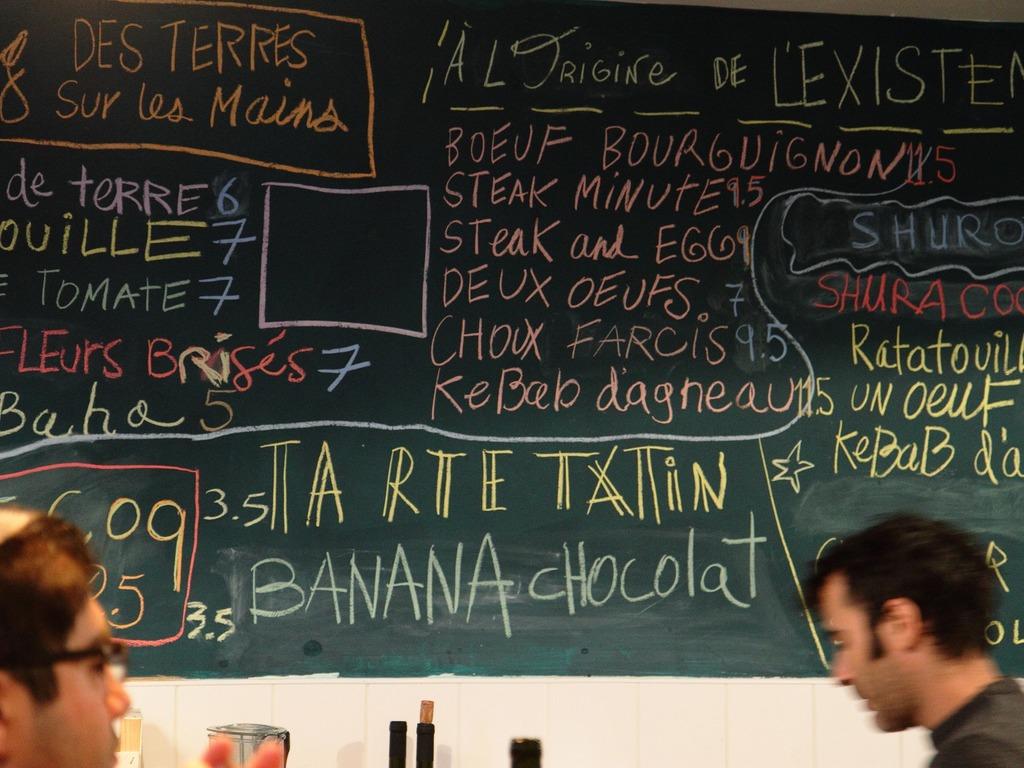 DES TERRES
Sur les Mains
de terre 6
OUILLE 7
TOMATE 7
FLEURS BRISÉS 7
Baha 5
COQ
3.5
À L'ORIGINE DE L'EXISTEN
BOEUF BOURGUIGNON 11.5
STEAK MINUTE 9.5
STEAK and EGG 9
DEUX OEUFS. 7
CHOUX FARCIS 9.5
KeBab d'agneau 11.5
3.5 TARTE TATTIN
3.5 BANANA CHOCOLAT
SHURO
SHURA COO
Ratatouill
UN OEUF
KeBaB d'a